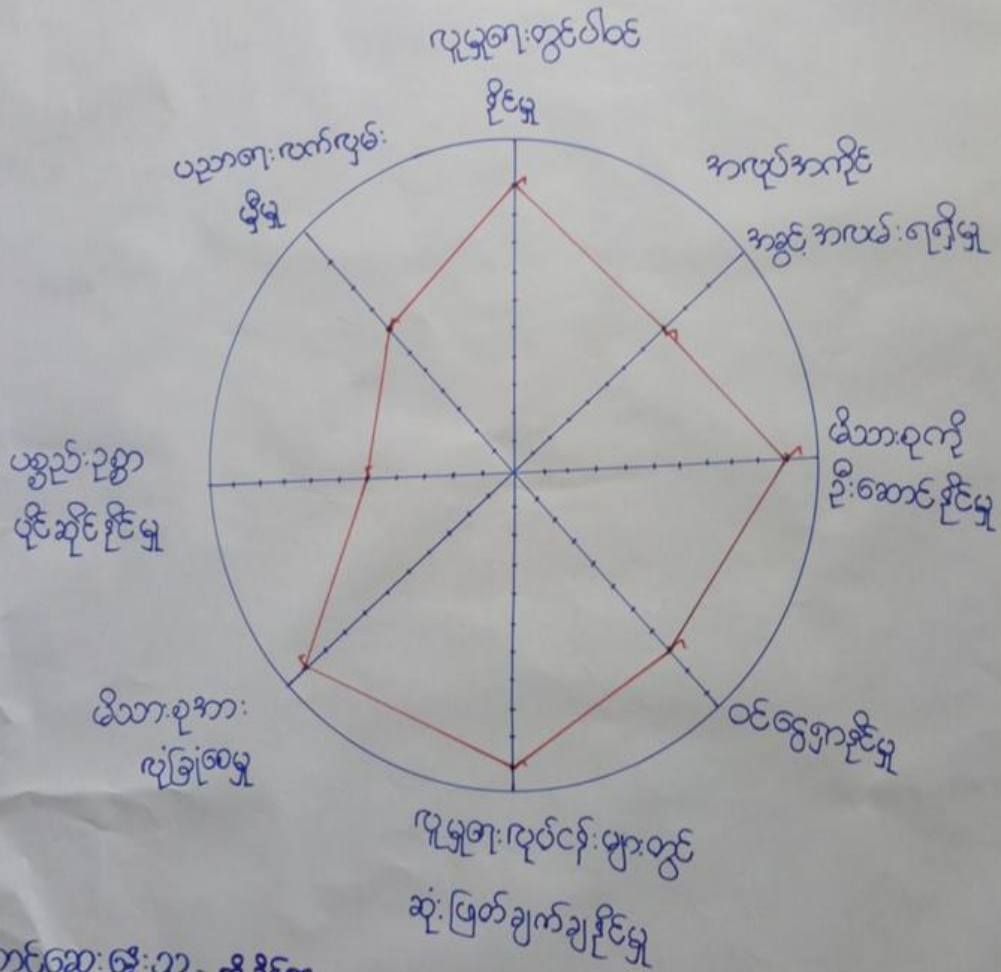 လူမှုရေးတွင်ပါဝင်
နိုင်မှု
အလုပ်အကိုင်
အခွင့်အလမ်းရရှိမှု
မိသားစုကို
ဦးဆောင်နိုင်မှု
ဝင်ငွေရှာနိုင်မှု
လူမှုရေးလုပ်ငန်းများတွင်
ဆုံးဖြတ်ချက်ချနိုင်မှု
မိသားစုအား
လုံခြုံစေမှု
ပစ္စည်းဥစ္စာ
ပိုင်ဆိုင်နိုင်မှု
ပညာရေးလက်လှမ်း
မှီမှု